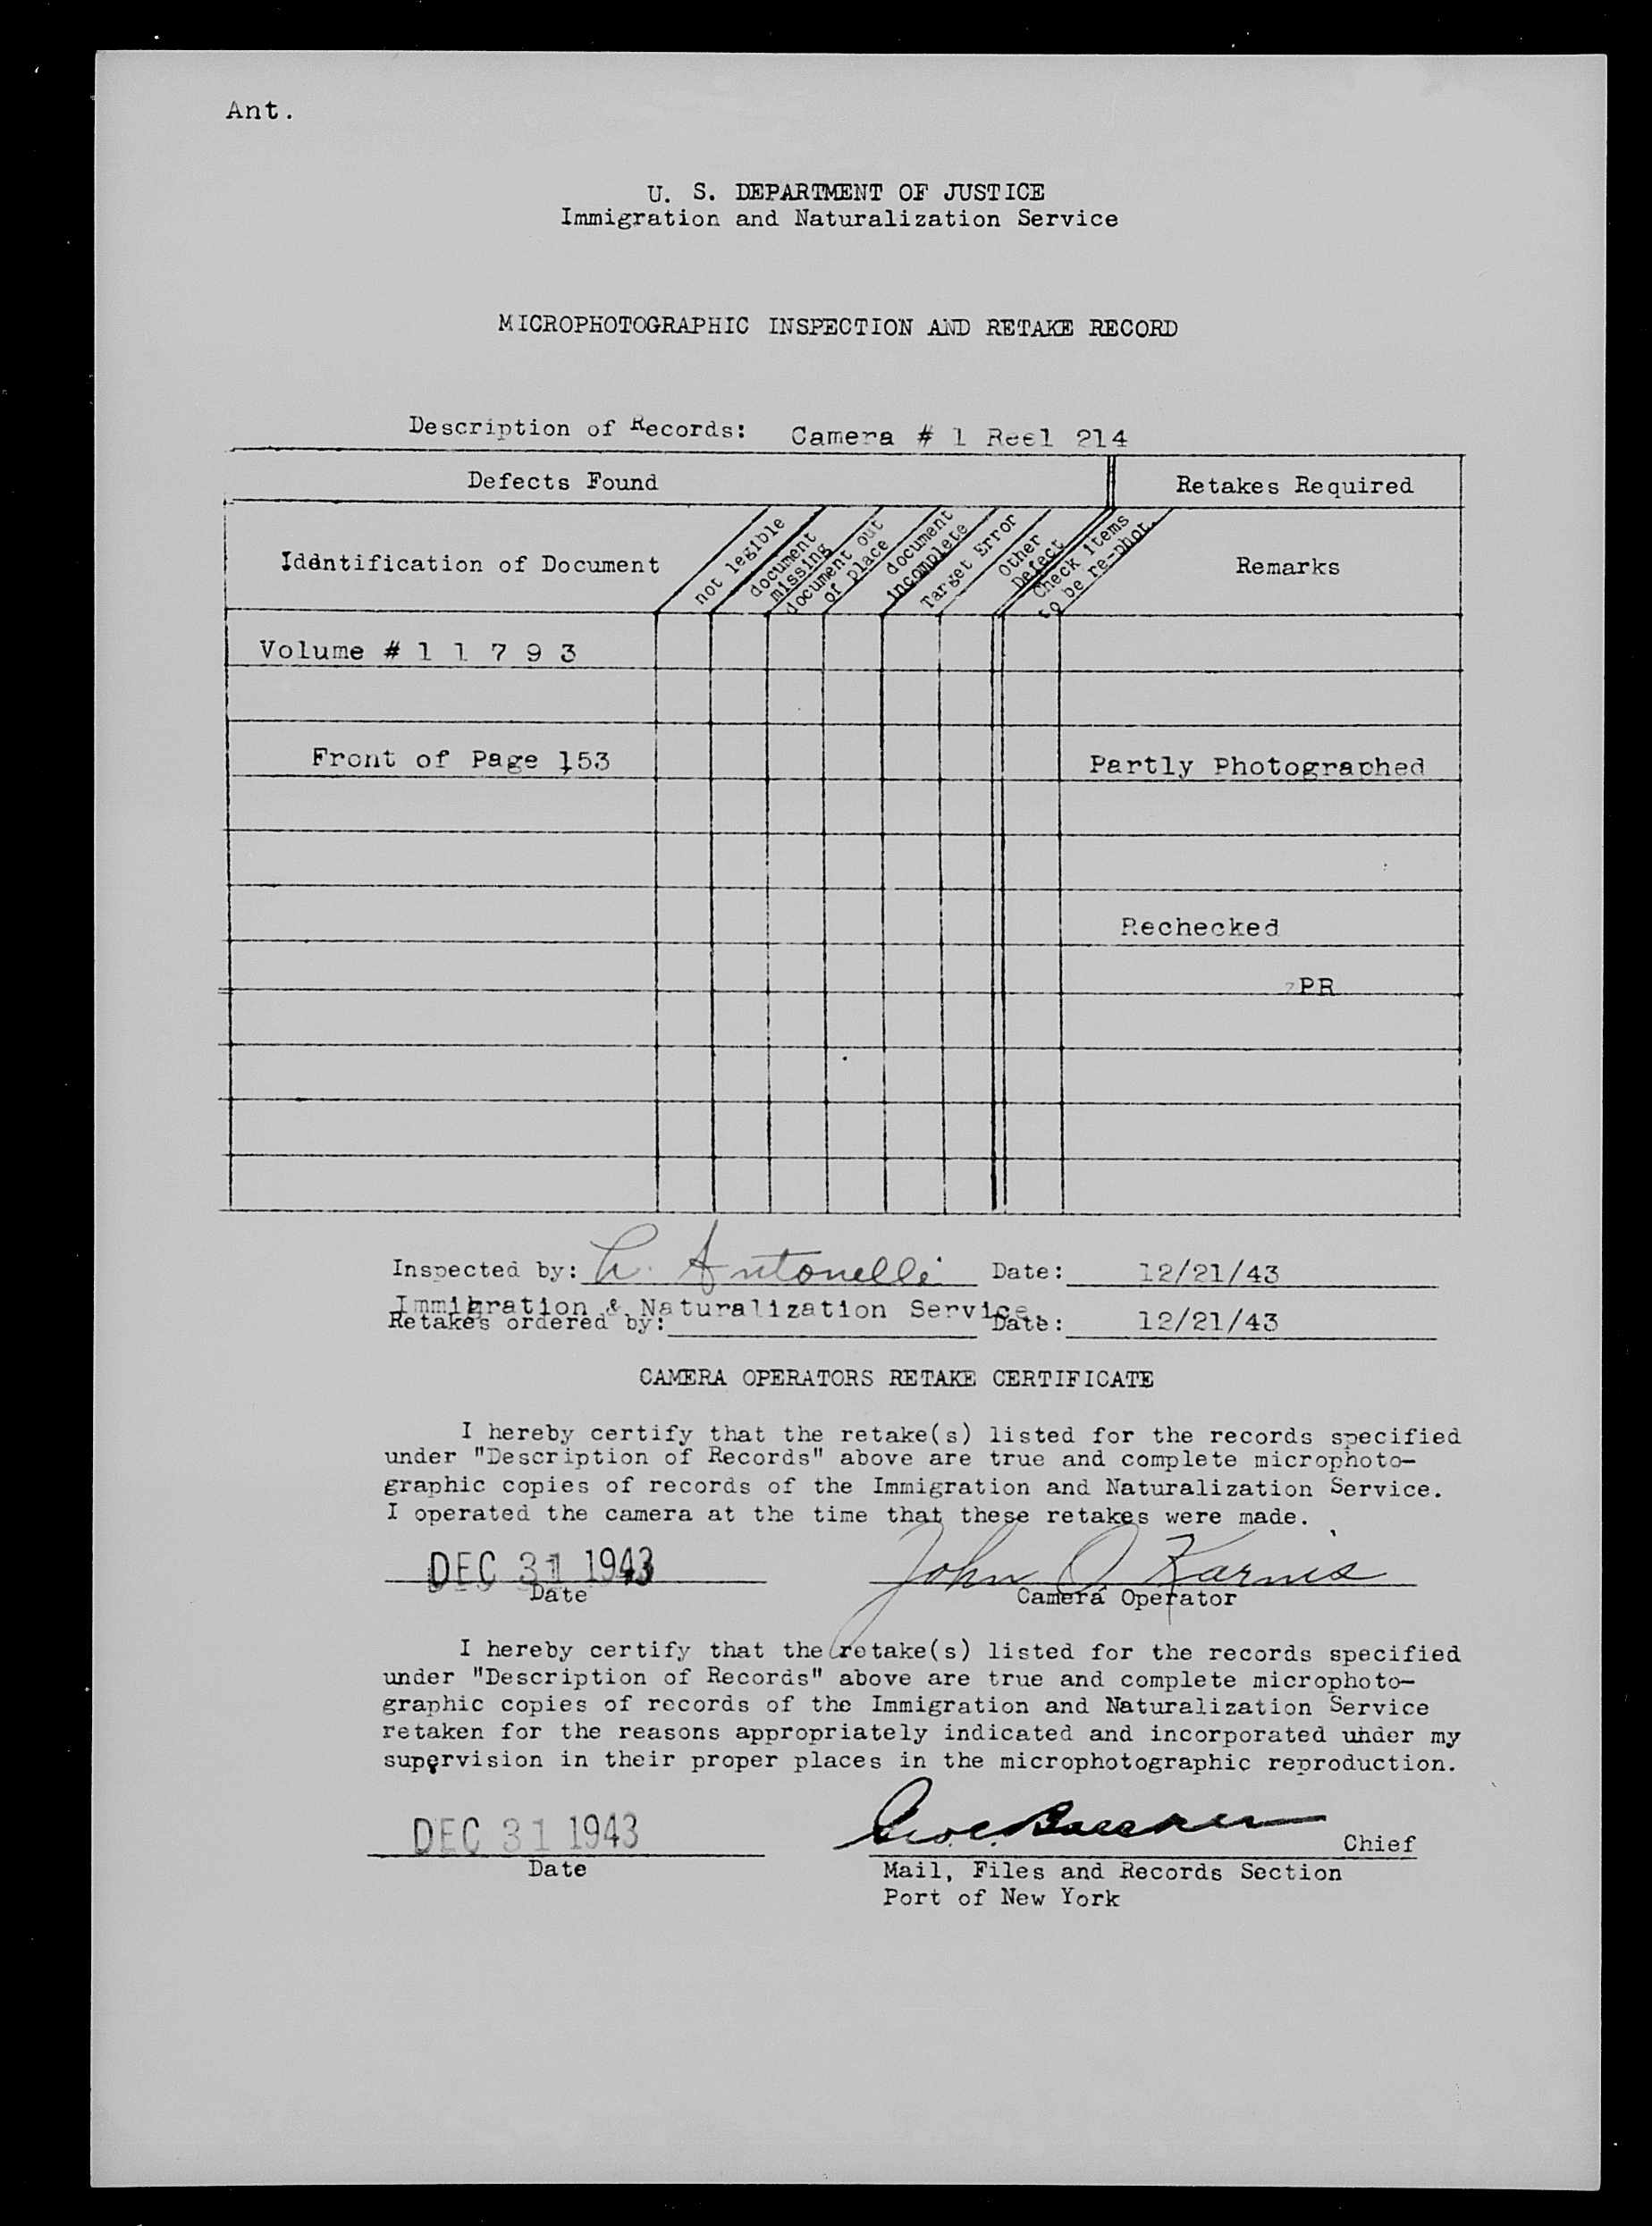 Ant.
U. S. DEPARTMENT OF JUSTICE
Immigration and Naturalization Service
MICROPHOTOGRAPHIC INSPECTION AND RETAKE RECORD
Description of Records: Camera # 1 Reel 214
Defects Found
Retakes Required
Identification of Document
not legible
document
missing
document out
of place
document
incomplete
Target Error
Other
Defect
Check items
to be re-phot.
Remarks
Volume # 1 1 7 9 3
Front of Page 153
Partly Photographed
Rechecked
PR
Inspected by: Antonelli Date: 12/21/43
Immigration & Naturalization Service.
Retakes ordered by: Date: 12/21/43
CAMERA OPERATORS RETAKE CERTIFICATE
I hereby certify that the retake(s) listed for the records specified
under "Description of Records" above are true and complete microphoto-
graphic copies of records of the Immigration and Naturalization Service.
I operated the camera at the time that these retakes were made.
DEC 31 1943 John O Karnis
Date Camera Operator
I hereby certify that the retake(s) listed for the records specified
under "Description of Records" above are true and complete microphoto-
graphic copies of records of the Immigration and Naturalization Service
retaken for the reasons appropriately indicated and incorporated under my
supervision in their proper places in the microphotographic reproduction.
DEC 31 1943 Chief
Date Mail, Files and Records Section
Port of New York